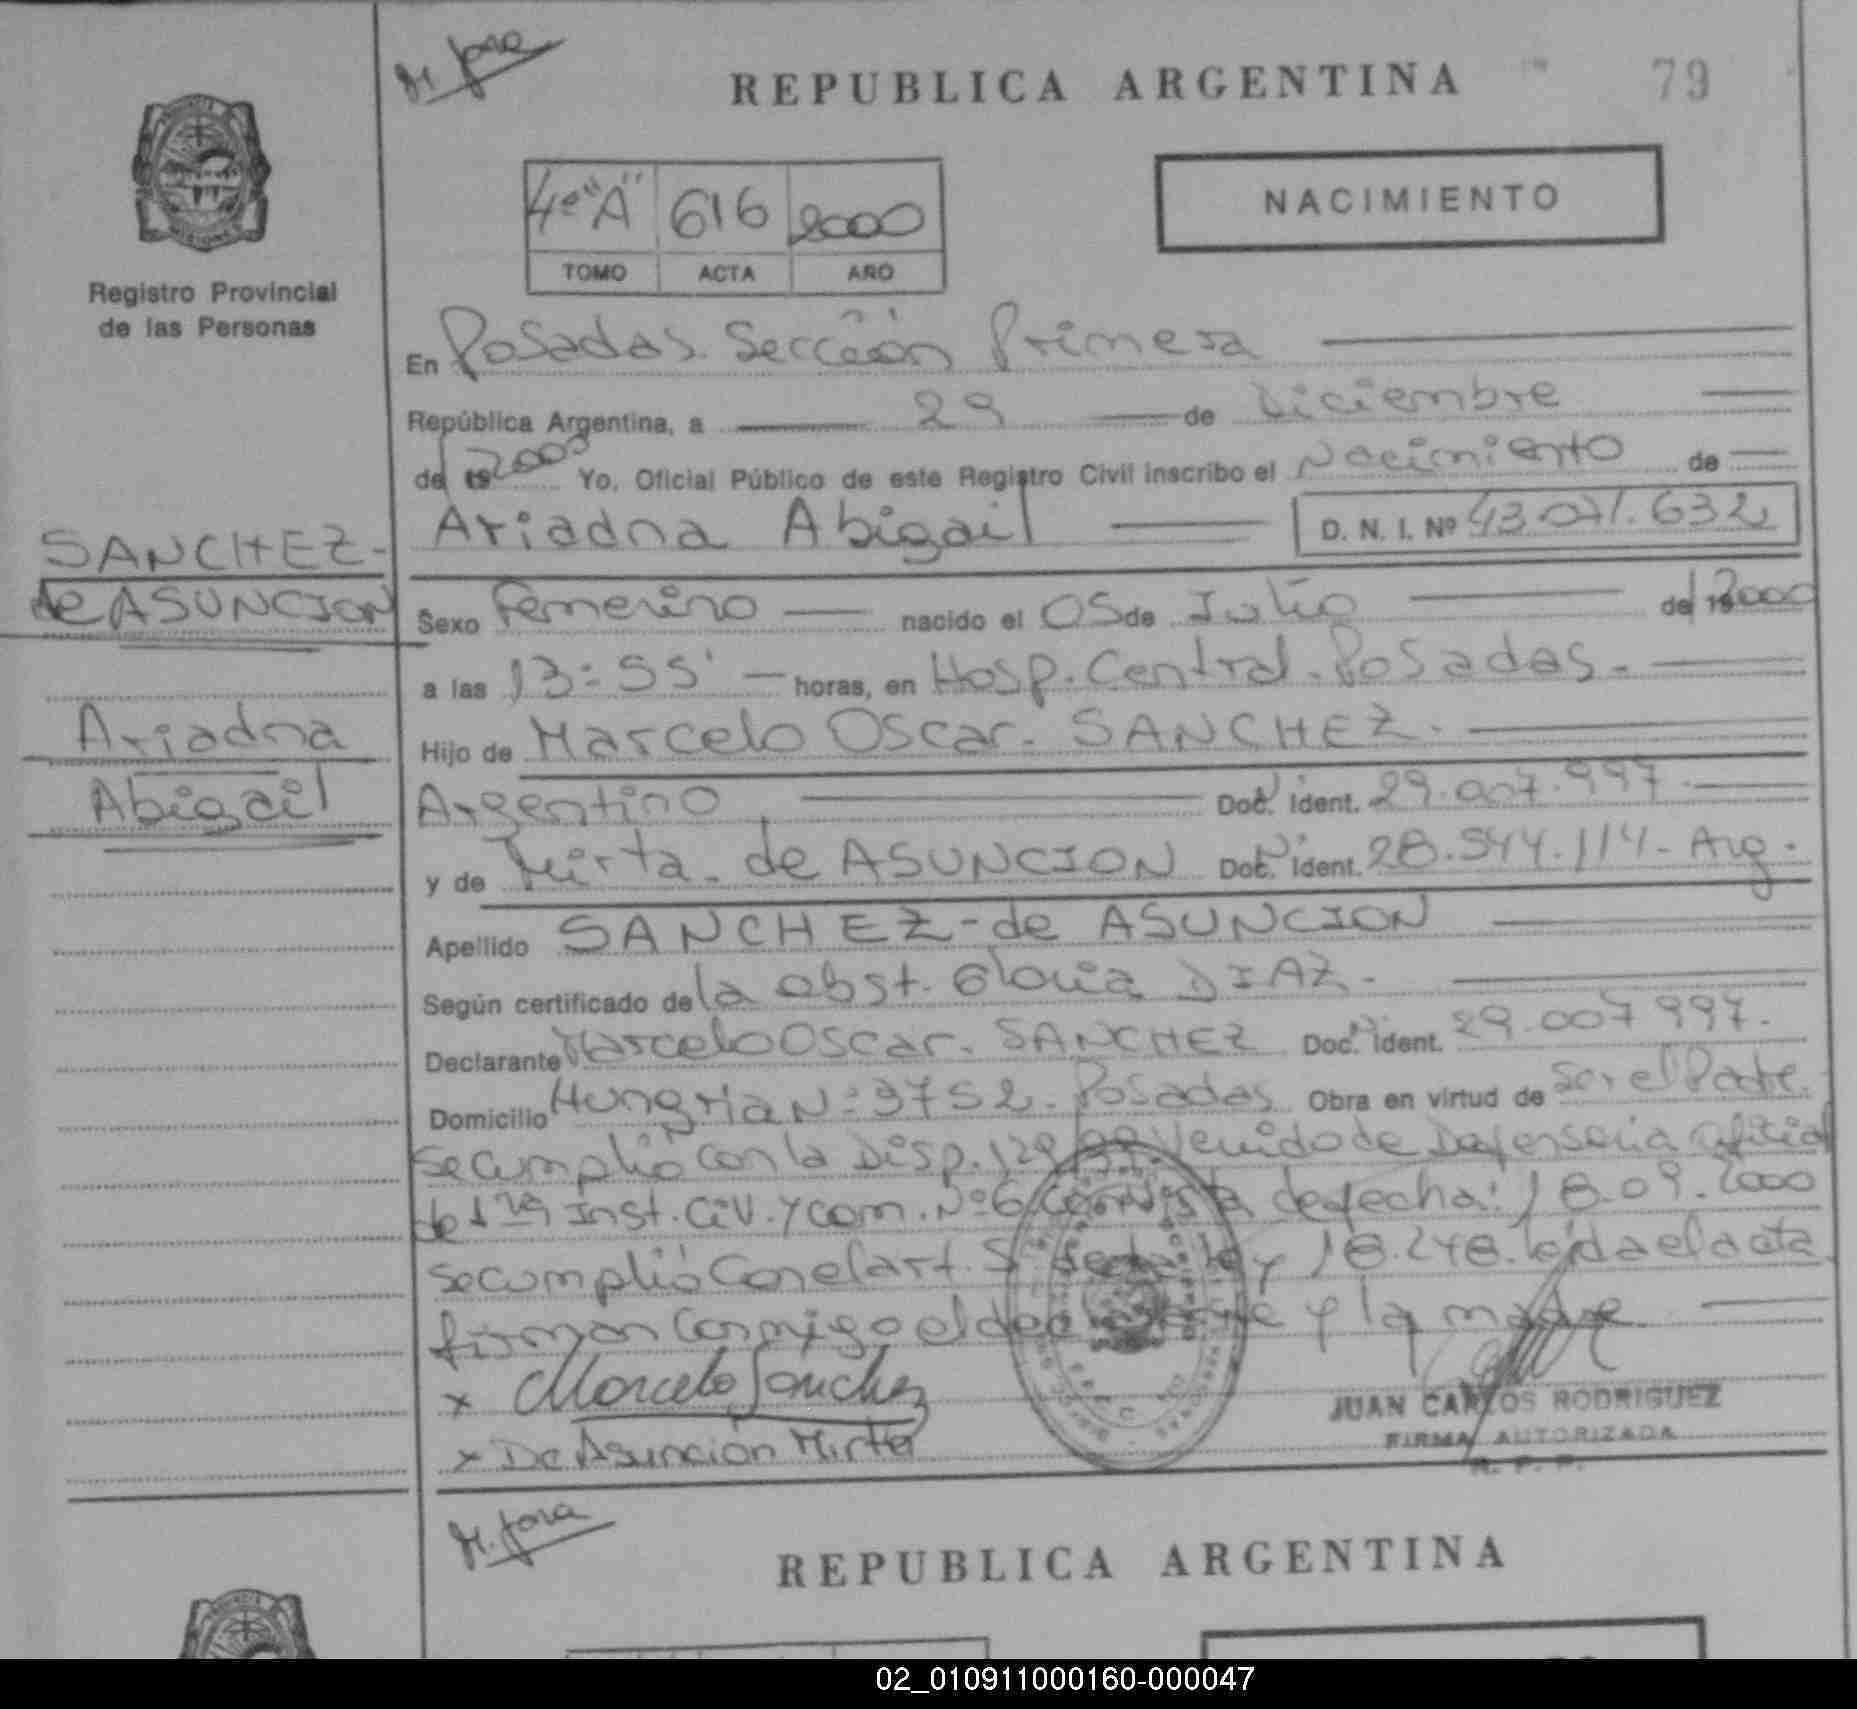 M. Jara
REPUBLICA ARGENTINA
79
4º "A" 616 2000
TOMO ACTA AÑO
NACIMIENTO
Registro Provincial
de las Personas
En Posadas. Sección Primera
República Argentina, a 29 de Diciembre
del 19 2000 Yo, Oficial Público de este Registro Civil inscribo el Nacimiento de
Ariadna Abigail D. N. I. Nº 43.071.632
SANCHEZ-
de ASUNCION
Ariadna
Abigail
Sexo Femenino nacido el 05 de Julio del 19 2000
a las 13:55' horas, en Hosp. Central. Posadas.
Hijo de Marcelo Oscar. SANCHEZ.
Argentino Doc. Ident. 29.007.997
y de Mirta. de ASUNCION Doc. Ident. 28.544.114. Arg.
Apellido SANCHEZ-de ASUNCION
Según certificado de la obst. Gloria DIAZ.
Declarante Marcelo Oscar. SANCHEZ Doc. Ident. 29.007 997.
Domicilio Hungria Nº 3752. Posadas Obra en virtud de Ser el Padre.
se cumplió con la Disp. 129/99. Venido de Defensoria Oficial
de 1ra Inst. Civ. y com. Nº 6 con vista de fecha: 18.09.2000
se cumplió con el art. 5º de la ley 18.248. leida el acta
firman conmigo el declarante y la madre.
x Marcelo Sanchez
x De Asunción Mirta
JUAN CARLOS RODRIGUEZ
FIRMA AUTORIZADA
R. P. P.
M. Jara
REPUBLICA ARGENTINA
02_010911000160-000047